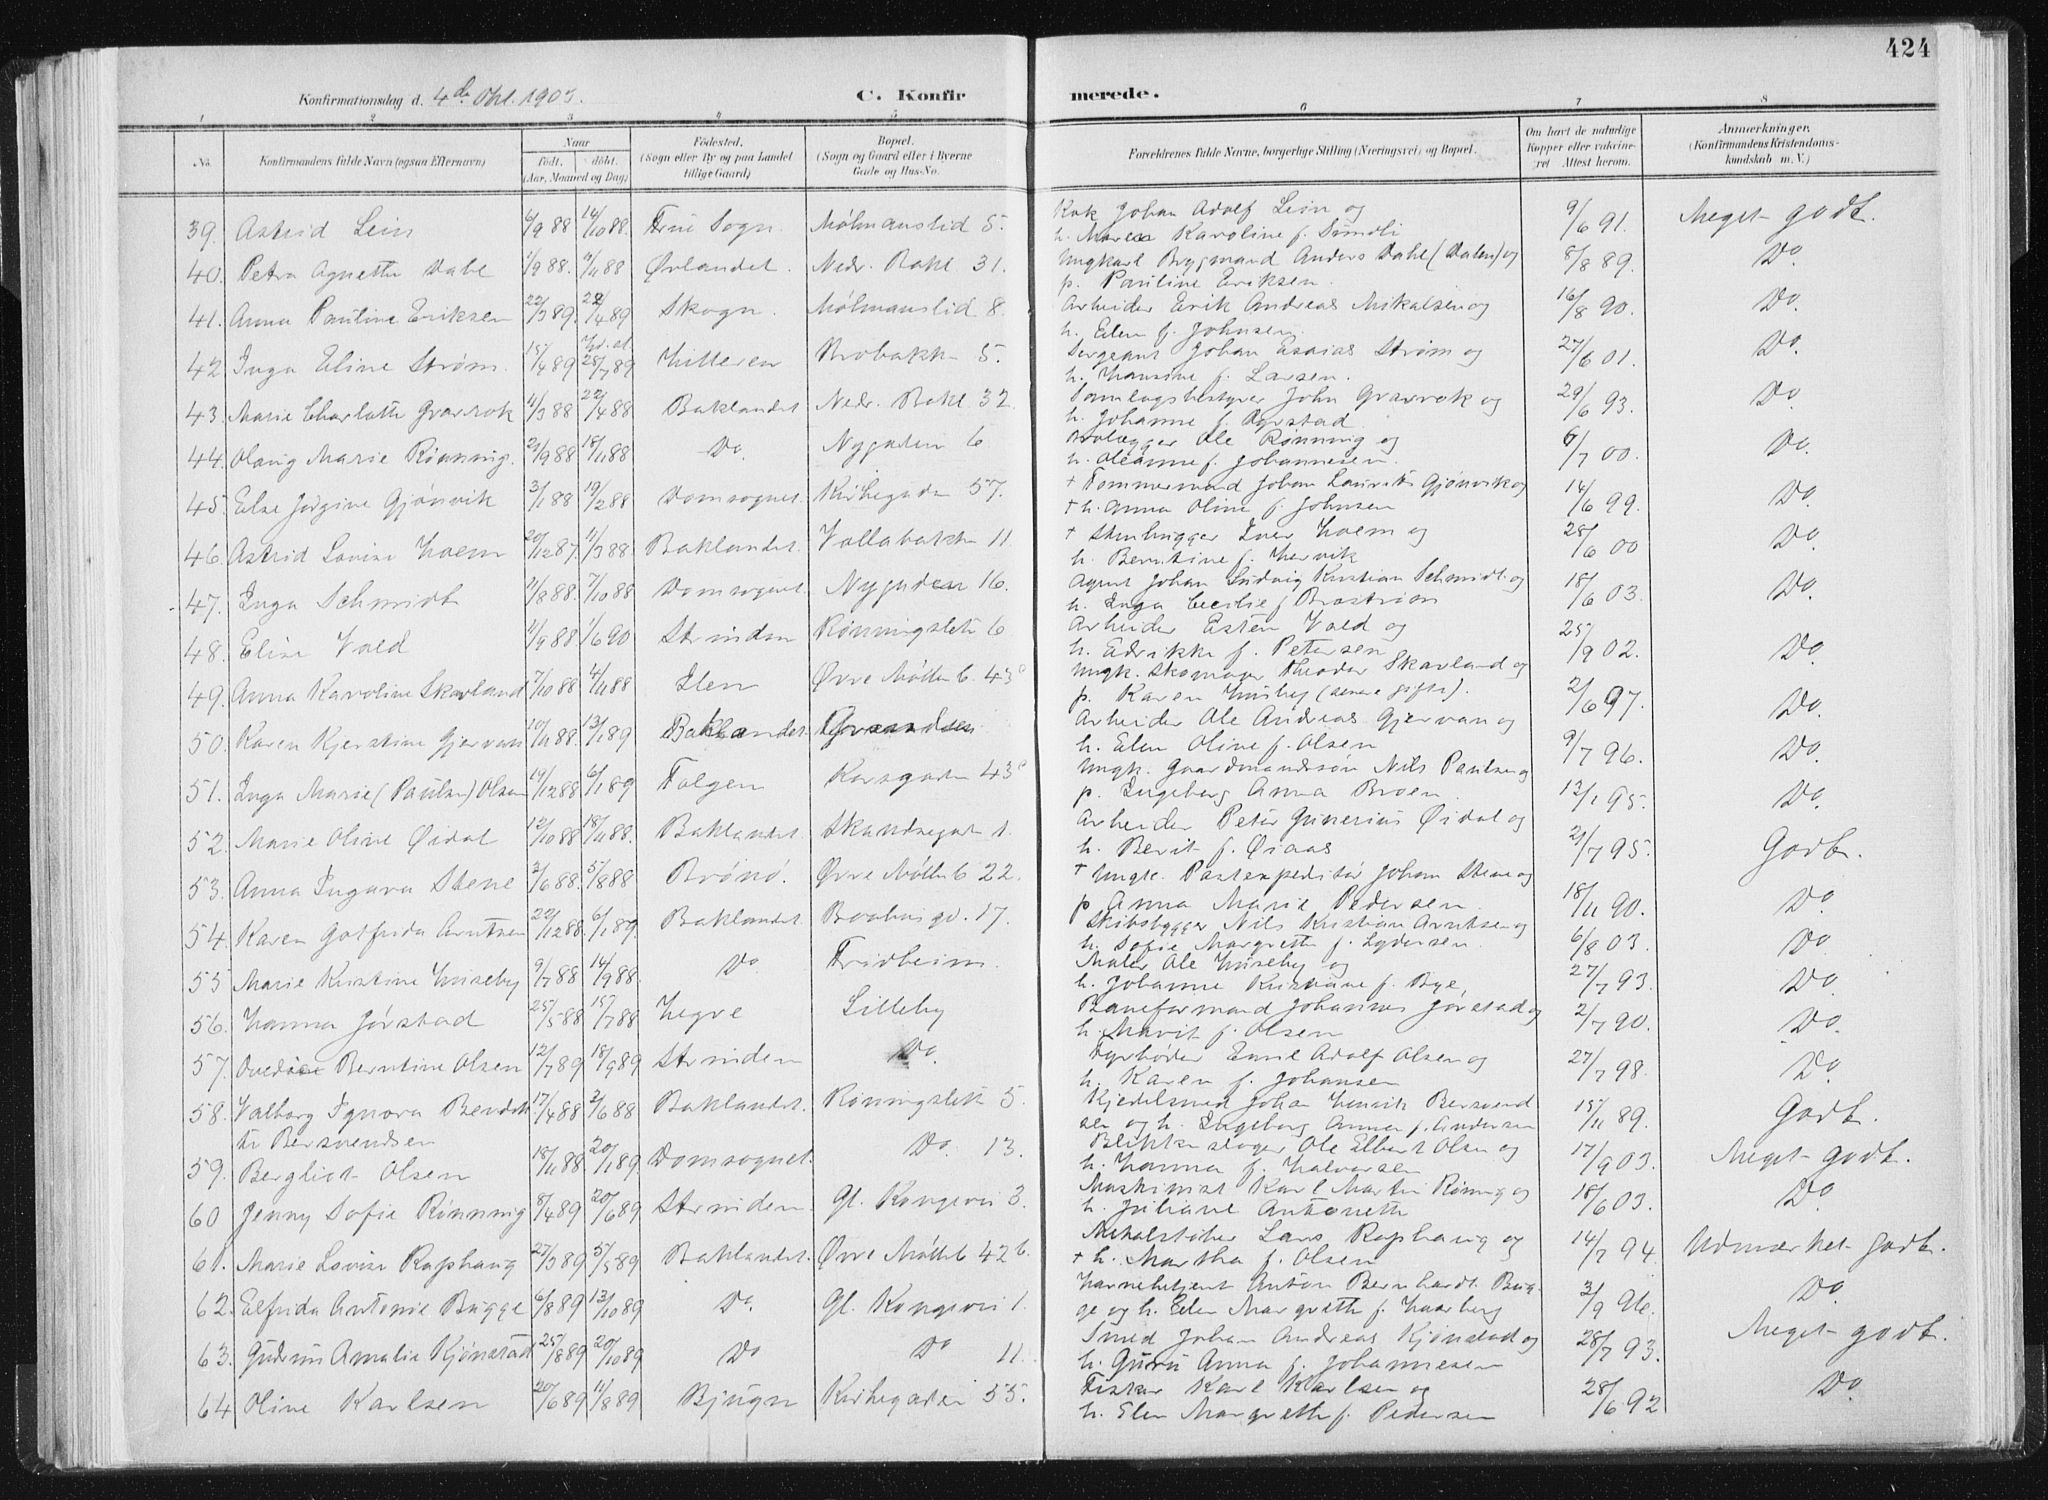 424
Konfirmationsdag d. 4de Okt. 1903.
C. Konfirmerede.
1 2 3 4 5 6 7 8
No.
Konfirmandens fulde Navn (ogsaa Efternavn)
Naar
født. døbt.
(Aar, Maaned og Dag)
Fødested.
(Sogn eller By og paa Landet
tillige Gaard)
Bopæl.
(Sogn og Gaard eller i Byerne
Gade og Hus-No.
Forældrenes fulde Navne, borgerlige Stilling (Næringsvei) og Bopæl.
Om havt de naturlige
Kopper eller vaccine-
ret Attest herom.
Anmærkninger.
(Konfirmandens Kristendoms-
kundskab m. V.)
39. Astrid Lein 6/9 88 14/10 88. Frue Sogn. Mølmanslid 5. Kok Johan Adolf Lein og 9/6 91. Meget godt.
h. Maren Karoline f. Sundli
40. Petra Agnethe Dahl 1/9 88. 4/11 88 Ørlandet. Nedr. Bakl 31. Ungkarl Brygmand Anders Dahl (Dalen) og 8/8 89. Do.
p. Pauline Eriksen.
41. Anna Pauline Eriksen 22/3 89. 22/4 89 Skogn. Mølmanslid 8. Arbeider Erik Andreas Mikalsen og 16/8 90. Do.
h. Elen f. Johnsen.
42 Inga Eline Strøm. 15/4 89 28/7 89 Hitteren Brobakk 5. Sergeant Johan Esaias Strøm og 27/6 01. Do.
h. Hansine f. Larsen.
43. Marie Charlotte Gravrok 4/3 88 22/4 88 Baklandet Nedr. Bakl 32. Samlagsbestyrer John Gravrok og 29/6 93. Do.
h. Johanne f. Rystad
44. Olaug Marie Rønning. 21/9 88 18/11 88 Do. Nygaten 6 Ole Rønning og 6/7 00. Do.
h. Oleanne f. Johannesen.
45. Else Jørgine Gjønvik 3/1 88 19/2 88 Domsognet. Kirkegaden 57. + Tømmermand Johan Laurits Gjønvik og 14/6 99. Do
+ h. Anna Oline f. Johnsen
46. Astrid Lovise Hoem 20/12 87. 11/3 88. Baklandet. Vollabakken 11. + Stenhugger Iver Hoem og 28/6 00 Do.
h. Berntine f. Hervik
47. Inga Schmidt 11/8 88. 7/10 88 Domsognet. Nygaden 16. Agent Johan Ludvig Kristian Schmidt og 18/6 03. Do.
h. Inga Cecilie f. Brostrøm
48. Elise Vold 11/9 88 1/6 90 Strinden Rønningsleti 6 Arbeider Esten Vold og 25/9 02. Do.
h. Edrikke f. Petersen
49. Anna Karoline Skavland 7/10 88 4/11 88 Ilen Øvre Møllenb. 43c Ungk. Skomager Theodor Skavland og 2/6 97. Do.
p. Karen Huseby (senere gifte).
50. Karen Kjerstine Gjervan 10/11 88. 13/1 89 Baklandet. Arbeider Ole Andreas Gjervan og 9/7 96. Do.
h. Elen Oline f. Olsen
51. Inga Marie (Paulsen) Olsen 19/12 88 6/1 89 Folgen Korsgaten 43c Ungk. Gaardmandssøn Nils Paulsen og 13/1 95. Do.
p. Ingeborg Anna Broen.
52. Marie Oline Øidal 12/10 88 18/11 88. Baklandet. Skandsegaten 1. Arbeider Peter Gunerius Øidal og 21/7 95. Godt.
h. Berit f. Øiaas
53. Anna Ingara Stene 2/6 88. 5/8 88 Brønø. Øvre Møllenb 22. + Ungk. Postexpeditør Johan Stene og 18/11 90. Do.
p Anna Marie Pedersen.
54. Karen Gotfrida Arntsen 22/12 88. 6/1 89. Baklandet Baahusgd. 17. Skibsbygger Nils Kristian Arntsen og 6/8 03. Do
h. Sofie Margrethe f. Lydersen.
55 Marie Kristine Huseby 9/7 88 14/9 88. Do Fridheim. Maler Ole Huseby og 27/7 93. Do.
h. Johanne Kristiane f. Bye,
56. Hanna Jørstad 25/5 88 15/7 88 Hegre Lilleby Baneformand Johannes Jørstad og 2/7 90. Do.
h. Marit f. Olsen
57. Berntine Olsen 12/7 89 18/9 89 Strinden Do. Fyrbøder Emil Adolf Olsen og 27/7 98. Do.
h. Karen f. Johansen
58. Valborg Ignora Bendik- 17/4 88 2/6 88 Baklandet. Rønningsleti 5. Kjedelsmed Johan Henrik Bersvend 15/11 89. Godt.
te Bersvendsen sen og h. Ingeborg Anna f. Andersen
59. Bergliot Olsen 18/11 88. 20/1 89. Domsognet. Do. 13. Blikkenslager Ole Elbert Olsen og 17/9 03. Meget godt.
h. Hanna f. Halvorsen
60 Jenny Sofie Rønning 8/4 89 20/6 89 Strinden Gl. Kongevei 3. Maskinist Karl Martin Rønning og 18/6 03. Do.
h. Juliane Antonette
61. Marie Lovise Raphaug 27/3 89 5/5 89 Baklandet. Øvre Møllenb 42 b. Metalstøber Lars Raphaug og 14/7 94. Udmærket godt.
+ h. Martha f. Olsen
62. Elfrida Antonie Bugge 6/8 89 13/10 89 Do. Gl. Kongevei 1. Havnebetjent Anton Bernhardt Bug- 3/9 96. Do.
ge og h. Elen Margrethe f. Haarberg
63. Gudrun Amalie Kjønstad 25/8 89 20/10 89 Do Do 11. Smed Johan Andreas Kjønstad og 28/7 93. Meget godt.
h. Guru Anna f. Johannesen
64 Oline Karlsen 20/6 89 11/8 89 Bjugn Kirkegaden 55. Fisker Karl Karlsen og 28/6 92 Do.
h. Elen Margrethe f. Pedersen